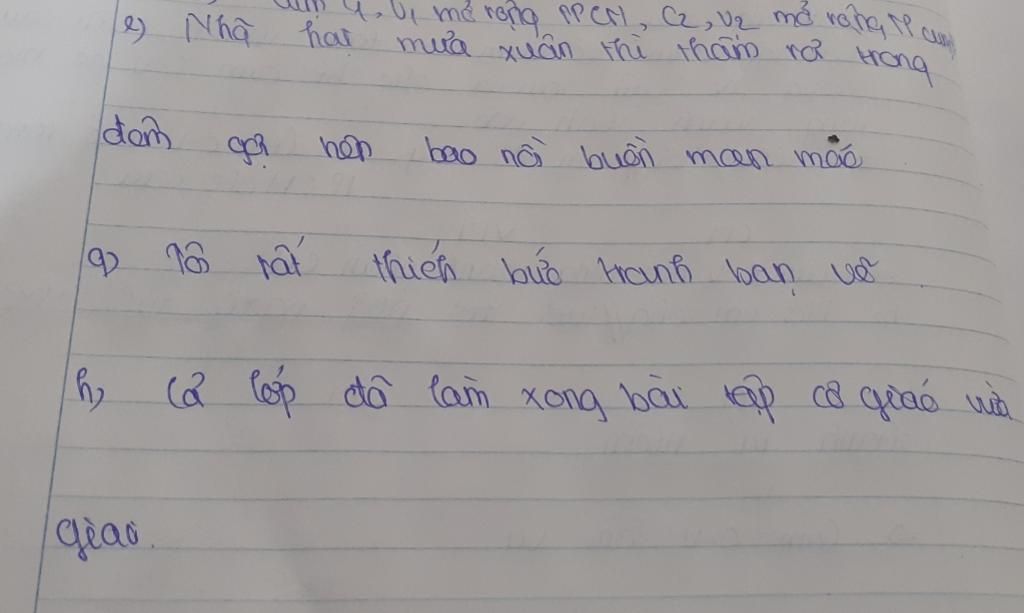 C1, V1 mở rộng TPCN, C2, V2 mở rộng TP cụm
e) Những hạt mưa xuân thì thầm rơi trong
đêm gợi nên bao nỗi buồn man mác
g) Tôi rất thích bức tranh bạn vẽ
h) Cả lớp đã làm xong bài tập cô giáo vừa
giao.